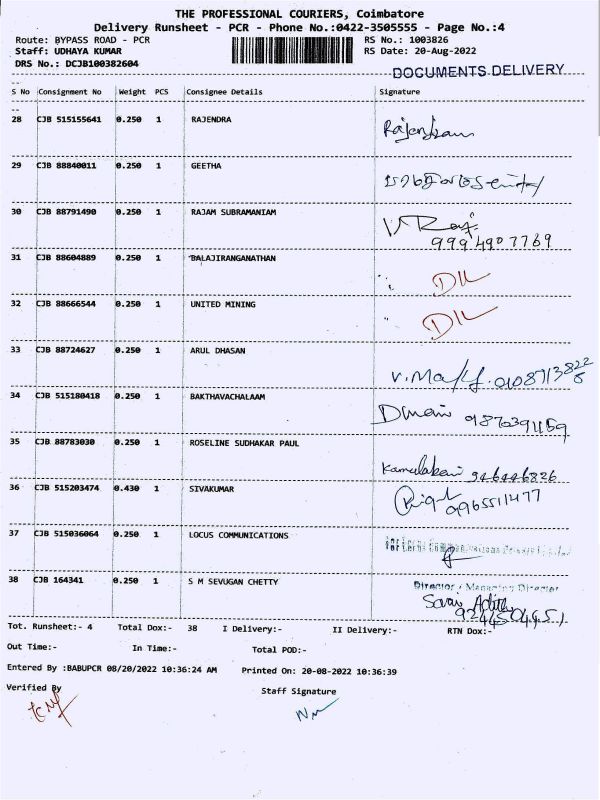 THE PROFESSIONAL COURIERS, Coimbatore
Delivery Runsheet - PCR - Phone No.:0422-3505555 - Page No.:4
Route: BYPASS ROAD - PCR RS No.: 1003826
Staff: UDHAYA KUMAR RS Date: 20-Aug-2022
DRS No.: DCJB100382604
DOCUMENTS DELIVERY
S No Consignment No Weight PCS Consignee Details Signature
28 CJB 515155641 0.250 1 RAJENDRA
29 CJB 88840011 0.250 1 GEETHA
30 CJB 88791490 0.250 1 RAJAM SUBRAMANIAM
9994907769
31 CJB 88604889 0.250 1 BALAJIRANGANATHAN
DIL
32 CJB 88666544 0.250 1 UNITED MINING
DIL
33 CJB 88724627 0.250 1 ARUL DHASAN
34 CJB 515180418 0.250 1 BAKTHAVACHALAAM
35 CJB 88783030 0.250 1 ROSELINE SUDHAKAR PAUL
36 CJB 515203474 0.430 1 SIVAKUMAR
9965511477
37 CJB 515036064 0.250 1 LOCUS COMMUNICATIONS
38 CJB 164341 0.250 1 S M SEVUGAN CHETTY
Director / Managing Director
Tot. Runsheet:- 4 Total Dox:- 38 I Delivery:- II Delivery:- RTN Dox:-
Out Time:- In Time:- Total POD:-
Entered By :BABUPCR 08/20/2022 10:36:24 AM Printed On: 20-08-2022 10:36:39
Verified By Staff Signature